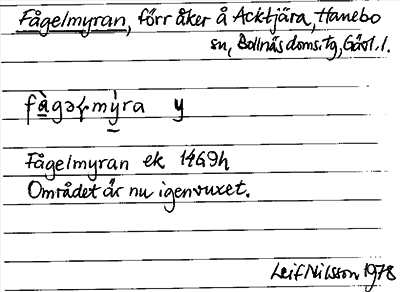 Fågelmyran, förr åker å Acktjära, Hanebo
sn, Bollnäs doms.tg, Gävl. l.
myra y
Fågelmyran ek 14G9h
Området är nu igenvuxet.
Leif Nilsson 1978